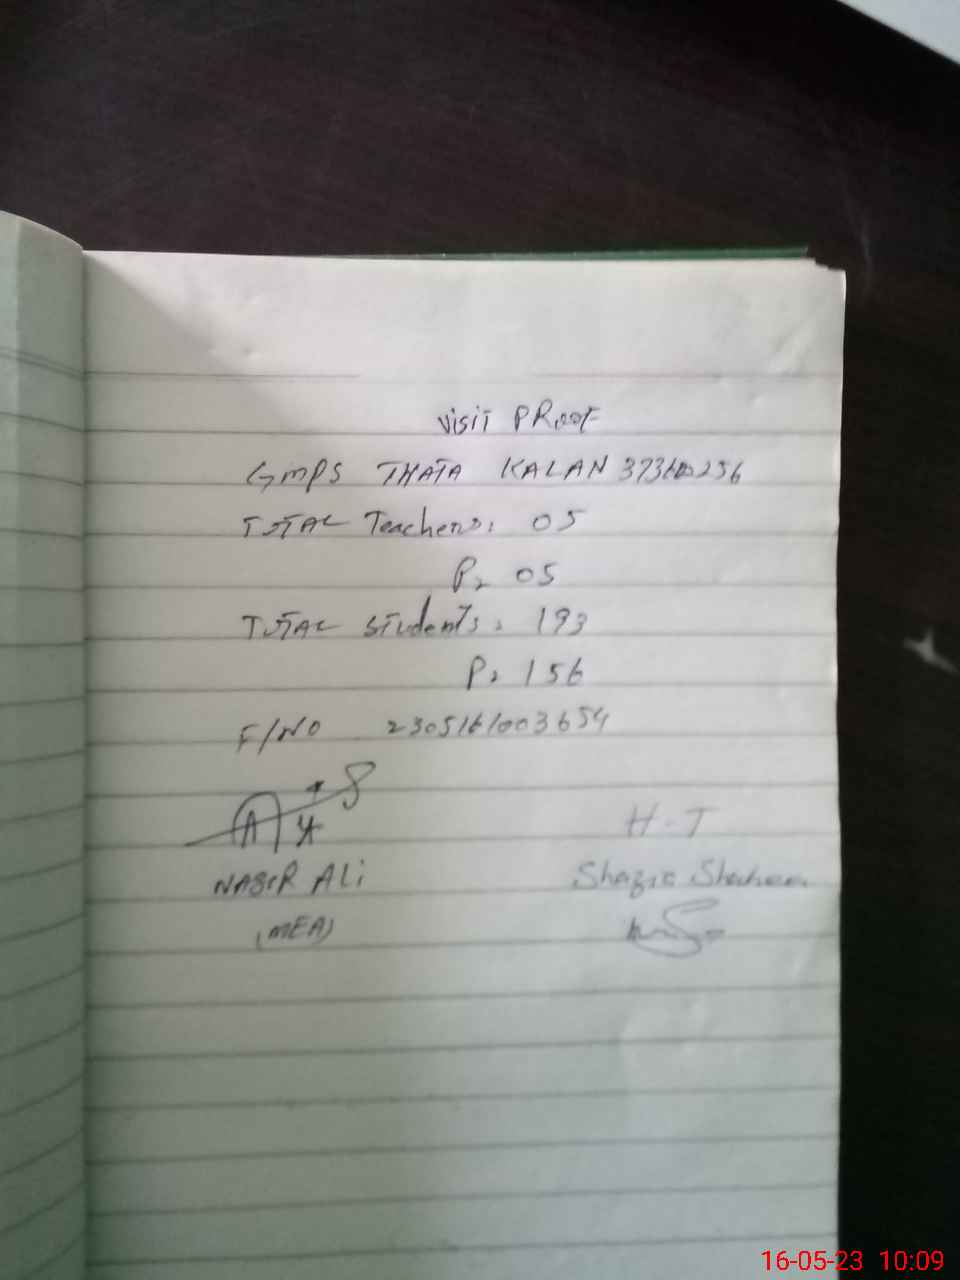 Visit PRoof
GMPS THATA KALAN
TOTAL Teachers: 05
P. 05
TOTAL Students: 193
P. 156
F/NO 2305161003654
NASIR ALi
(MEA)
H.T
Shazia Shaheen
16-05-23 10:09